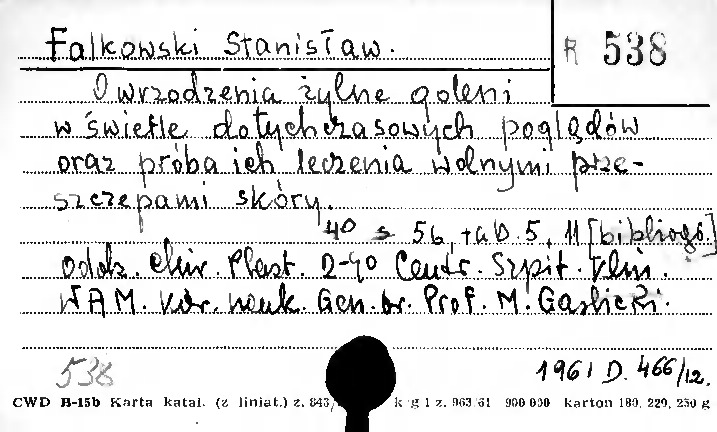 Falkowski Stanisław.
R 538
Owrzodzenia żylne goleni
w świetle dotychczasowych poglądów
oraz próba ich leczenia wolnymi prze-
szczepami skóry.
40 s 56, tab. 5, 11 [bibliogr.]
Oddz. Chir. Plast. 2-go Centr. Szpit. Klin.
WAM. Kier. nauk. Gen. br. Prof. M. Garlicki.
538
1961 D. 466/12.
CWD B-15b Karta katal. (z liniat.) z. 843/ k g 1 z. 963/61 900 000 karton 180, 220, 250 g